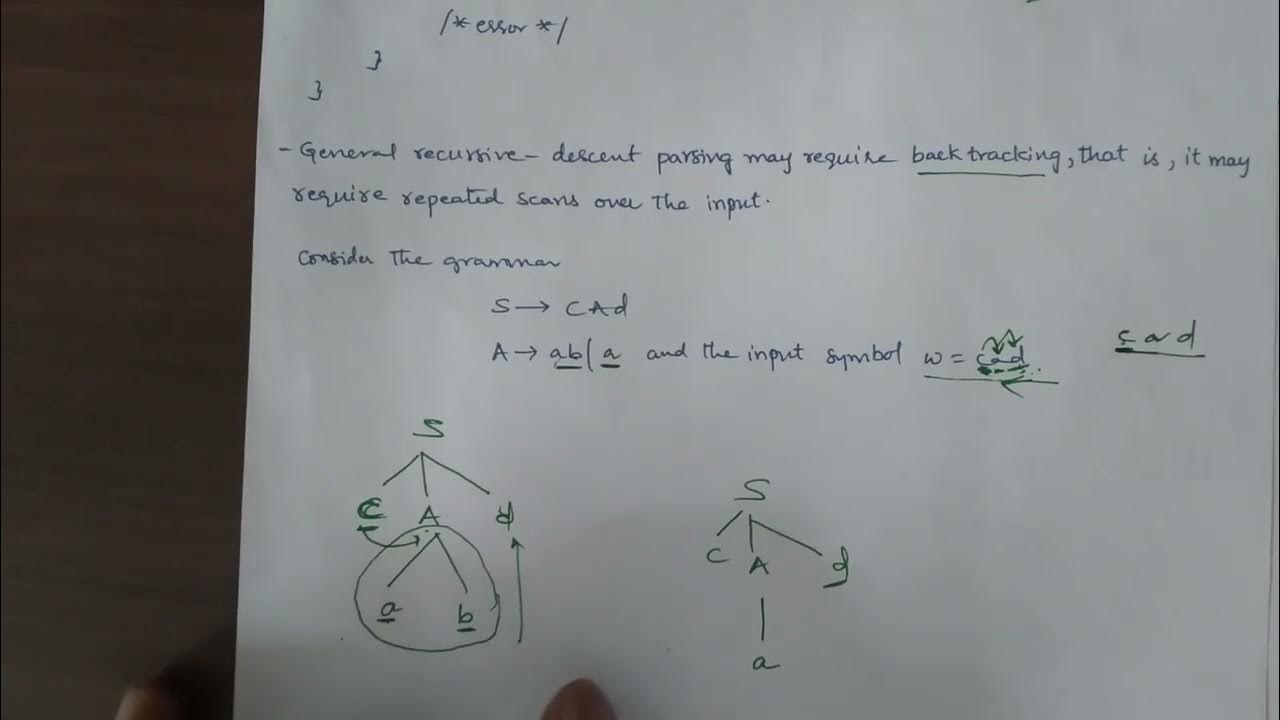 /* error */
}
}
- General recursive- descent parsing may require backtracking, that is, it may
require repeated scans over the input.
Consider the grammar
S → CAd
A → ab|a and the input symbol w = cad.
cad
S
C A d
a b
S
C A d
a